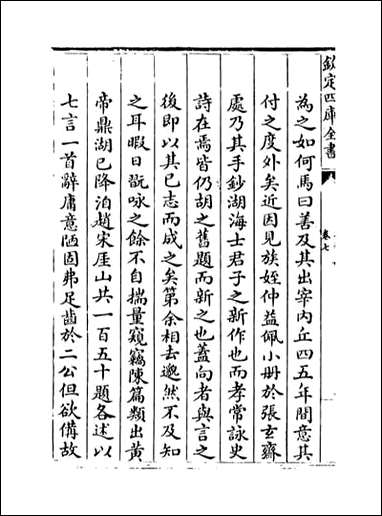 欽定四庫全書
卷七
為之如何馬曰善及其出宰内丘四五年間意其
付之度外矣近因見族姪仲益佩小冊於張玄齋
處乃其手鈔湖海士君子之新作也而孝常詠史
詩在焉皆仍胡之舊題而新之也蓋向者與言之
後即以其已志而成之矣第余相去邈然不及知
之耳暇日翫咏之餘不自揣量窺竊陳篇類出黄
帝鼎湖已降泊趙宋厓山共一百五十題各述以
七言一首辭庸意陋固弗足齒於二公但欲備故